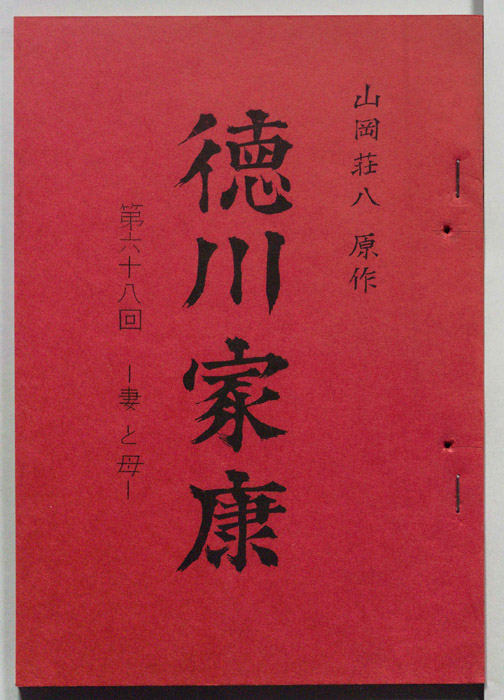 山岡荘八 原作
徳川家康
第六十八回 ー妻と母ー